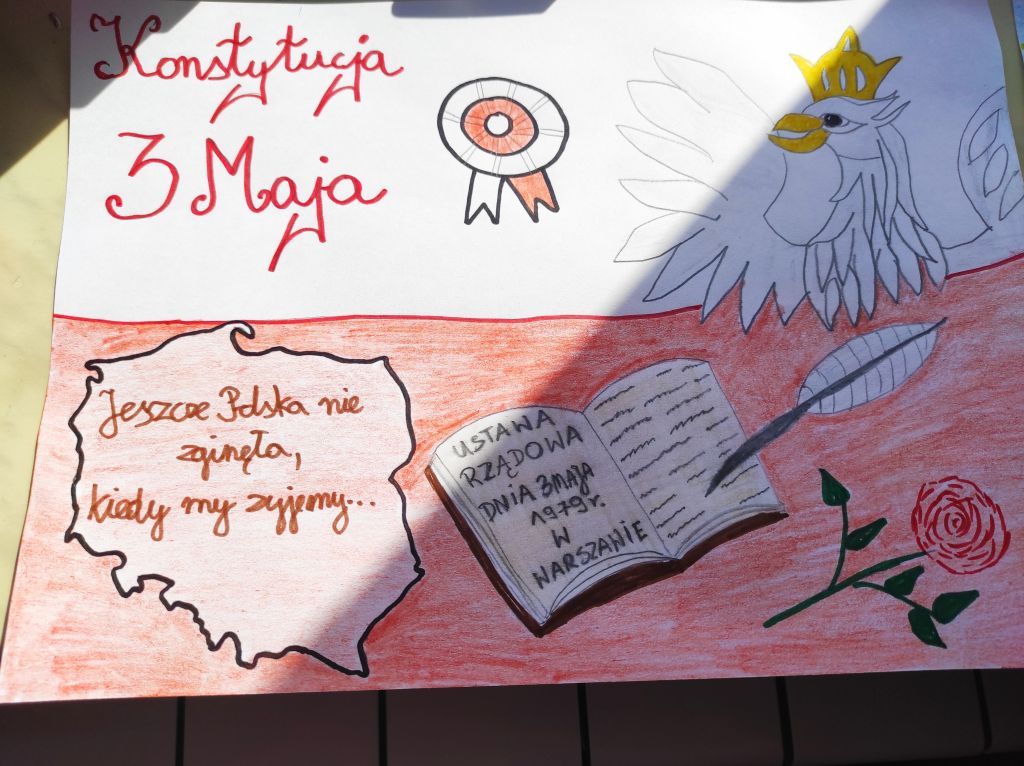 Konstytucja
3 Maja
Jeszcze Polska nie
zginęła,
kiedy my żyjemy...
USTAWA
RZĄDOWA
DNIA 3 MAJA
1979 r.
W
WARSZAWIE